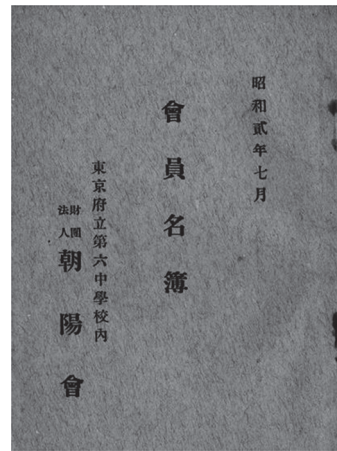 昭和貳年七月
會員名簿
東京府立第六中學校內
財團法人 朝陽會